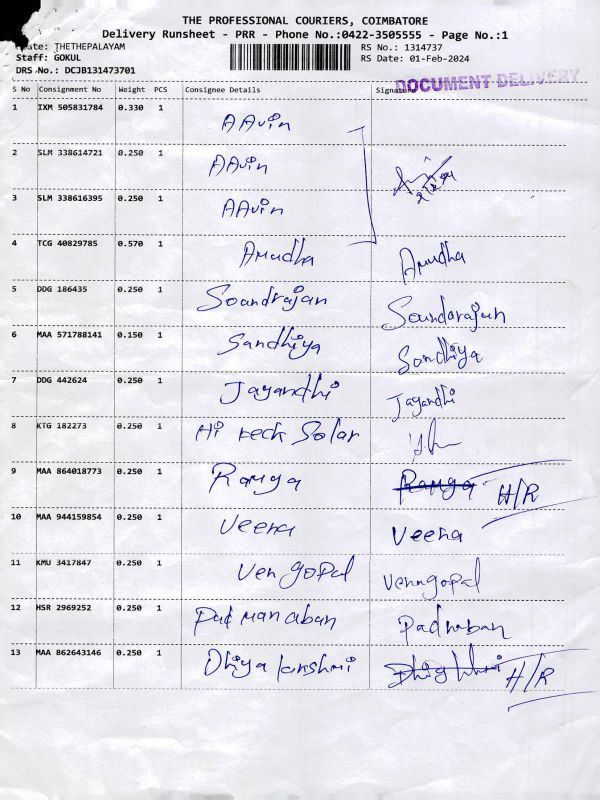 THE PROFESSIONAL COURIERS, COIMBATORE
Delivery Runsheet - PRR - Phone No.:0422-3505555 - Page No.:1
Route: THETHEPALAYAM
RS No.: 1314737
Staff: GOKUL
RS Date: 01-Feb-2024
DRS No.: DCJB131473701
DOCUMENT DELIVERY
S No Consignment No Weight PCS Consignee Details Signature
1 IXM 505831784 0.330 1 AAvin
2 SLM 338614721 0.250 1 AAvin
3 SLM 338616395 0.250 1 AAvin
4 TCG 40829785 0.570 1 Amudha Amudha
5 DDG 186435 0.250 1 Soandrajan Soundarajan
6 MAA 571788141 0.150 1 Sandhiya Sandhiya
7 DDG 442624 0.250 1 Jayandhi Jayandhi
8 KTG 182273 0.250 1 Hi teck Solar
9 MAA 864018773 0.250 1 Ramya Ramya H/R
10 MAA 944159854 0.250 1 Veena Veena
11 KMU 3417847 0.250 1 Ven gopal Venngopal
12 HSR 2969252 0.250 1 Pad manaban Padnaban
13 MAA 862643146 0.250 1 Dhiya lakshmi H/R